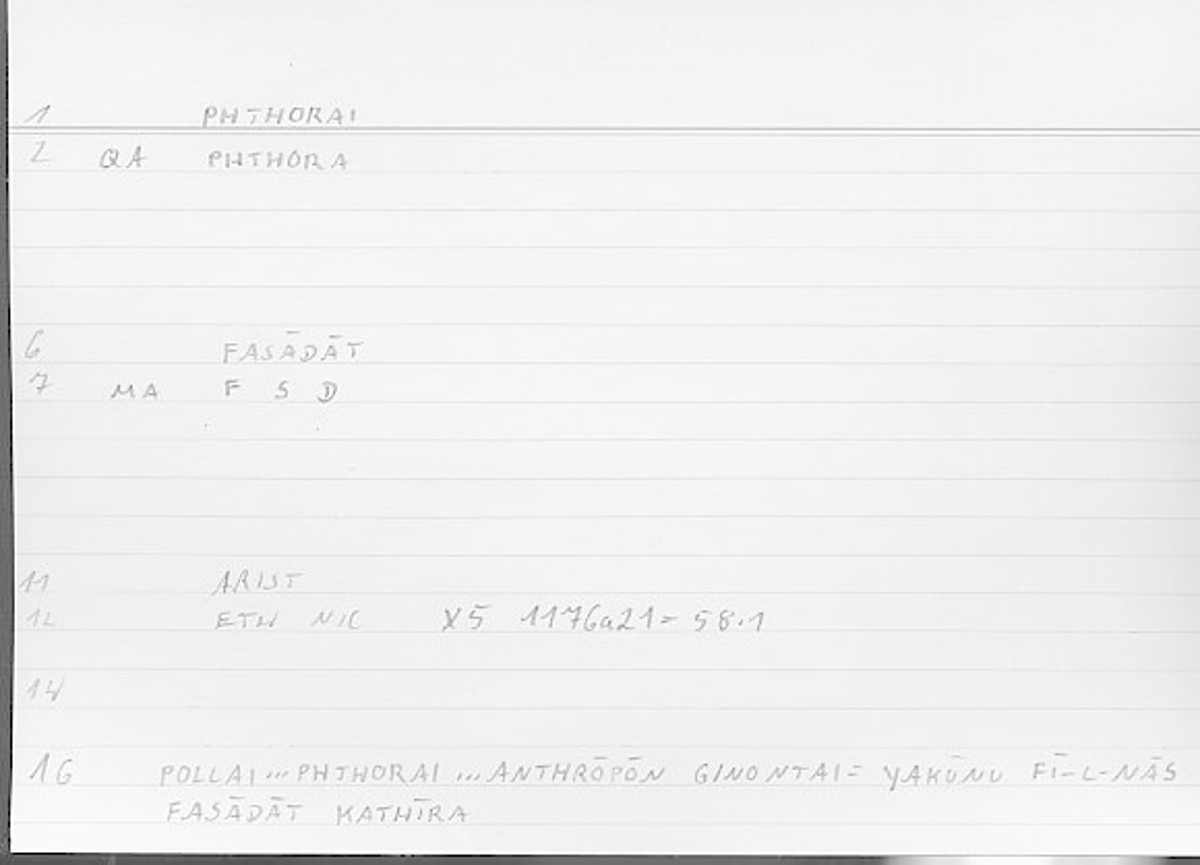 1 PHTHORAI
2 QA PHTHORA
6 FASĀDĀT
7 MA F S D
11 ARIST
12 ETH NIC X5 1176a21= 58.1
14
16 POLLAI...PHTHORAI...ANTHRŌPŌN GINONTAI= YAKŪNU FĪ-L-NĀS
FASĀDĀT KATHĪRA